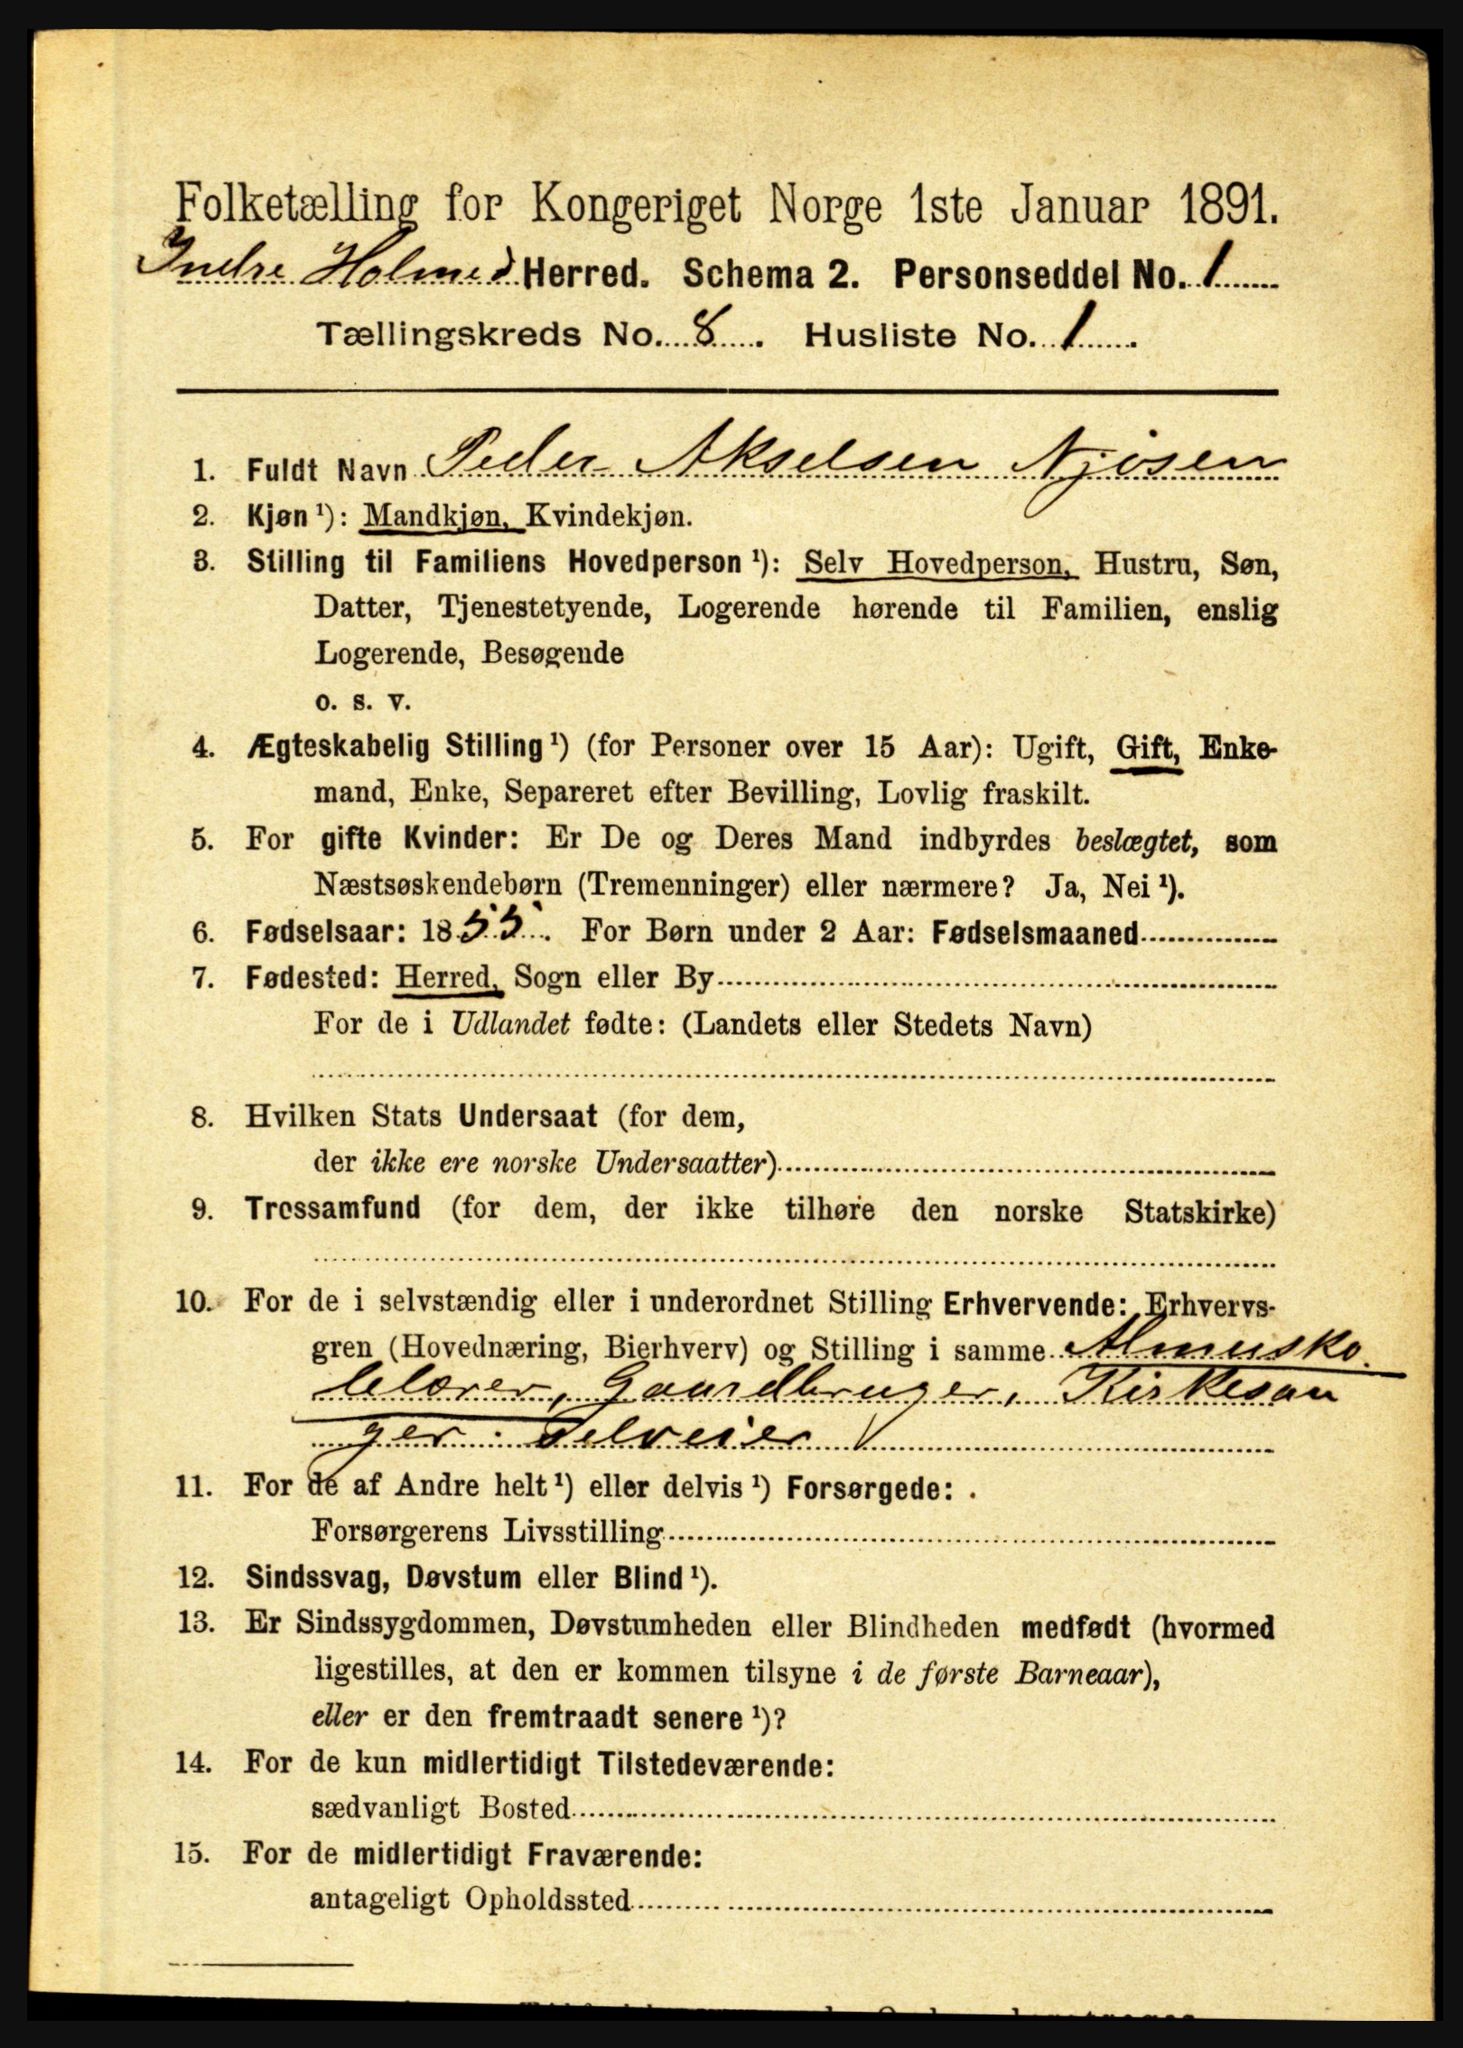 Folketælling for Kongeriget Norge 1ste Januar 1891.
Indre Holmed Herred. Schema 2. Personseddel No. 1
Tællingskreds No. 8. Husliste No. 1.
1. Fuldt Navn Peder Akselsen Njøsen
2. Kjøn ¹): Mandkjøn, Kvindekjøn.
3. Stilling til Familiens Hovedperson ¹): Selv Hovedperson, Hustru, Søn,
Datter, Tjenestetyende, Logerende hørende til Familien, enslig
Logerende, Besøgende
o. s. v.
4. Ægteskabelig Stilling ¹) (for Personer over 15 Aar): Ugift, Gift, Enke-
mand, Enke, Separeret efter Bevilling, Lovlig fraskilt.
5. For gifte Kvinder: Er De og Deres Mand indbyrdes beslægtet, som
Næstsøskendebørn (Tremenninger) eller nærmere? Ja, Nei ¹).
6. Fødselsaar: 1855. For Børn under 2 Aar: Fødselsmaaned
7. Fødested: Herred, Sogn eller By
For de i Udlandet fødte: (Landets eller Stedets Navn)
8. Hvilken Stats Undersaat (for dem,
der ikke ere norske Undersaatter)
9. Trossamfund (for dem, der ikke tilhøre den norske Statskirke)
10. For de i selvstændig eller i underordnet Stilling Erhvervende: Erhvervs-
gren (Hovednæring, Bierhverv) og Stilling i samme Almuesko
lelærer, Gaardbruger, Kirkesan
ger. Selveier
11. For de af Andre helt ¹) eller delvis ¹) Forsørgede:
Forsørgerens Livsstilling
12. Sindssvag, Døvstum eller Blind ¹).
13. Er Sindssygdommen, Døvstumheden eller Blindheden medfødt (hvormed
ligestilles, at den er kommen tilsyne i de første Barneaar),
eller er den fremtraadt senere ¹)?
14. For de kun midlertidigt Tilstedeværende:
sædvanligt Bosted
15. For de midlertidigt Fraværende:
antageligt Opholdssted